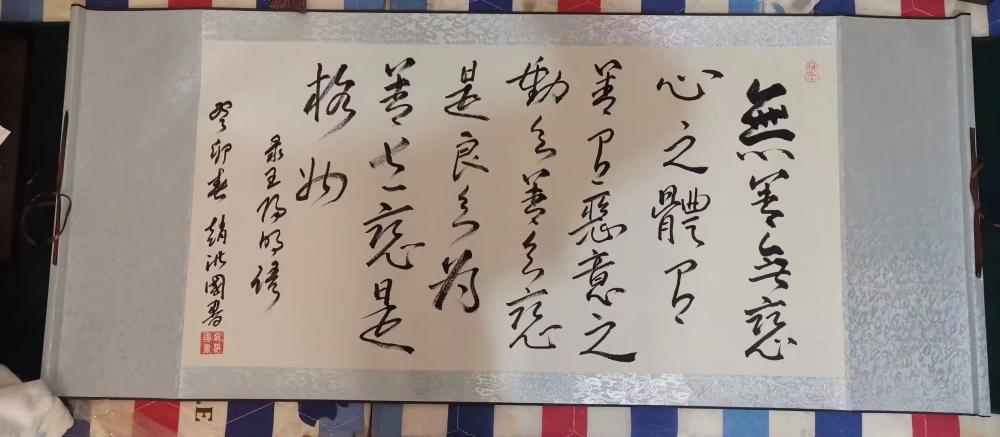 無善無惡
心之體有
善有惡意之
動知善知惡
是良知為
善去惡是
格物
录王陽明
癸卯春 趙洪國書